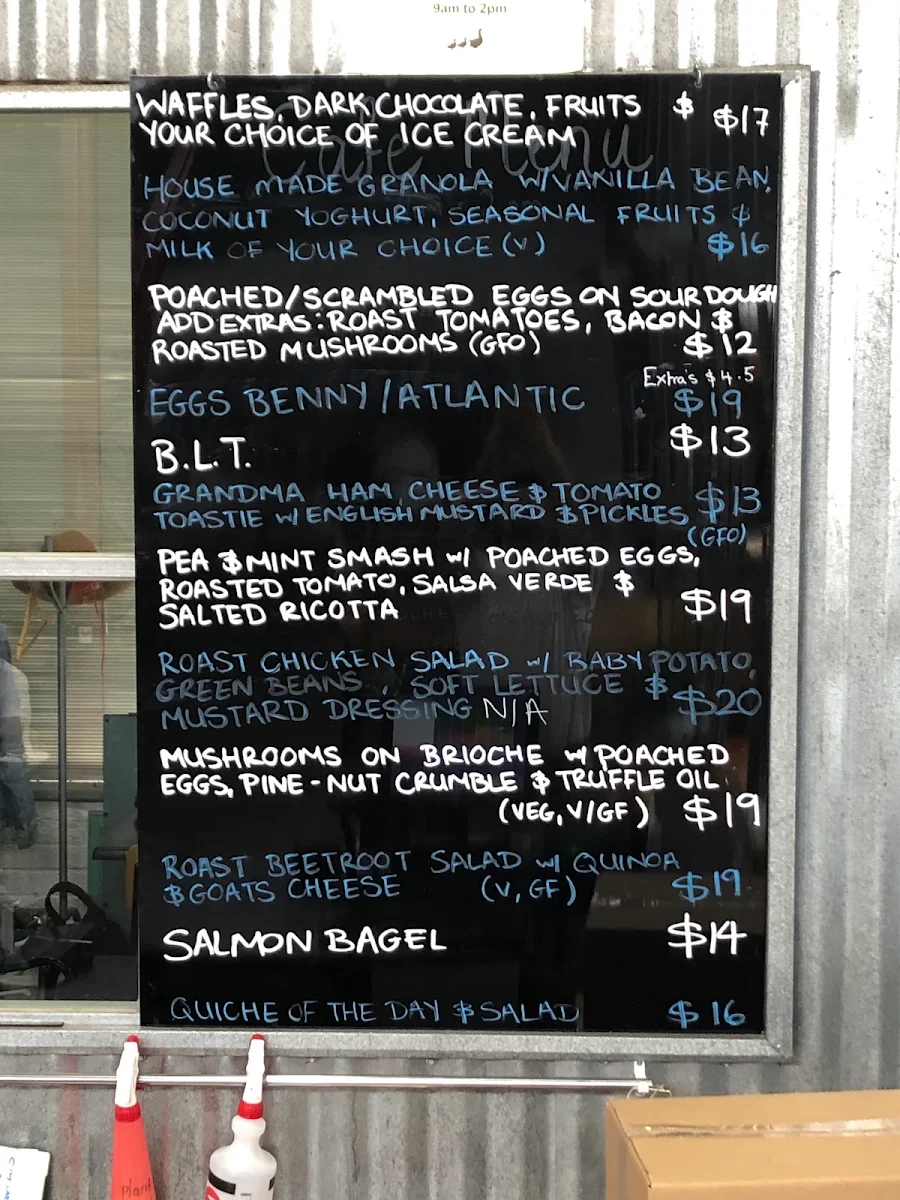 9am to 2pm
Cafe Menu
WAFFLES, DARK CHOCOLATE, FRUITS & $17
YOUR CHOICE OF ICE CREAM
HOUSE MADE GRANOLA W/VANILLA BEAN,
COCONUT YOGHURT, SEASONAL FRUITS &
MILK OF YOUR CHOICE (V) $16
POACHED/SCRAMBLED EGGS ON SOURDOUGH
ADD EXTRAS: ROAST TOMATOES, BACON &
ROASTED MUSHROOMS (GFO) $12
Extra's $4.5
EGGS BENNY/ATLANTIC $19
B.L.T. $13
GRANDMA HAM, CHEESE & TOMATO $13
TOASTIE W/ ENGLISH MUSTARD & PICKLES
(GFO)
PEA & MINT SMASH W/ POACHED EGGS,
ROASTED TOMATO, SALSA VERDE &
SALTED RICOTTA $19
ROAST CHICKEN SALAD W/ BABY POTATO,
GREEN BEANS, SOFT LETTUCE &
MUSTARD DRESSING N/A $20
MUSHROOMS ON BRIOCHE W/ POACHED
EGGS, PINE-NUT CRUMBLE & TRUFFLE OIL.
(VEG, V/GF) $19
ROAST BEETROOT SALAD W/ QUINOA
& GOATS CHEESE (V, GF) $19
SALMON BAGEL $14
QUICHE OF THE DAY & SALAD $16